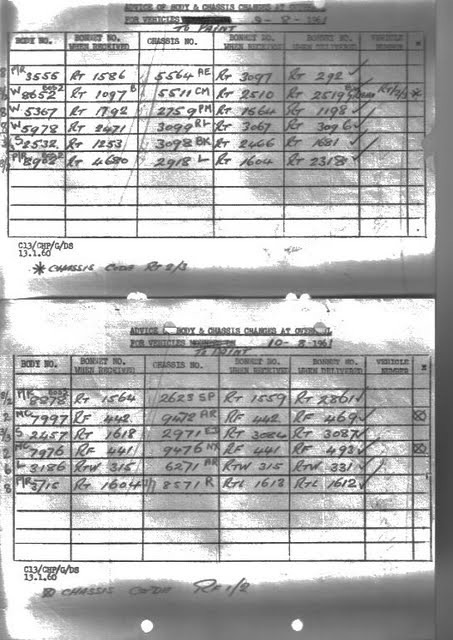 ADVICE OF BODY & CHASSIS CHANGES AT
FOR VEHICLES 9-8-1961
TO PAINT
BODY NO. BONNET NO. WHEN RECEIVED CHASSIS NO. BONNET NO. WHEN RECEIVED BONNET NO. WHEN DELIVERED VEHICLE NUMBER *
8 MR 3555 RT 1586 5564 AE RT 3097 RT 292 ✓
W 8652 RT 1097 B 5511 CM RT 2510 RT 2519 *
8 W 5367 RT 1792 2759 PM RT 1564 RT 1198 ✓
8 W 5978 RT 2471 3099 RL RT 3067 RT 3096 ✓
S 2532 RT 1253 3098 BK RT 2466 RT 1681 ✓
RT 4680 2918 L RT 1604 RT 2318 ✓
C13/CHP/G/DS
13.1.60
* CHASSIS CODE RT 2/3
ADVICE BODY & CHASSIS CHANGES AT
FOR VEHICLES 10-8-1961
TO PAINT
BODY NO. BONNET NO. WHEN RECEIVED CHASSIS NO. BONNET NO. WHEN RECEIVED BONNET NO. WHEN DELIVERED VEHICLE NUMBER
8878 RT 1564 2623 SP RT 1559 RT 2861 ✓
2 MC 7997 RF 442 9472 AR RF 442 RF 469 ✓
S 2457 RT 1618 2971 RT 3084 RT 3087 ✓
2 MC 7976 RF 441 9476 RF 441 RF 493 ✓
6 L 3186 RTW 315 6271 AR RTW 315 RTW 331 ✓
8 MR 3715 RT 1604 8571 R RTL 1613 RTL 1612 ✓
C13/CHP/G/DS
13.1.60
CHASSIS CODE RF 1/2